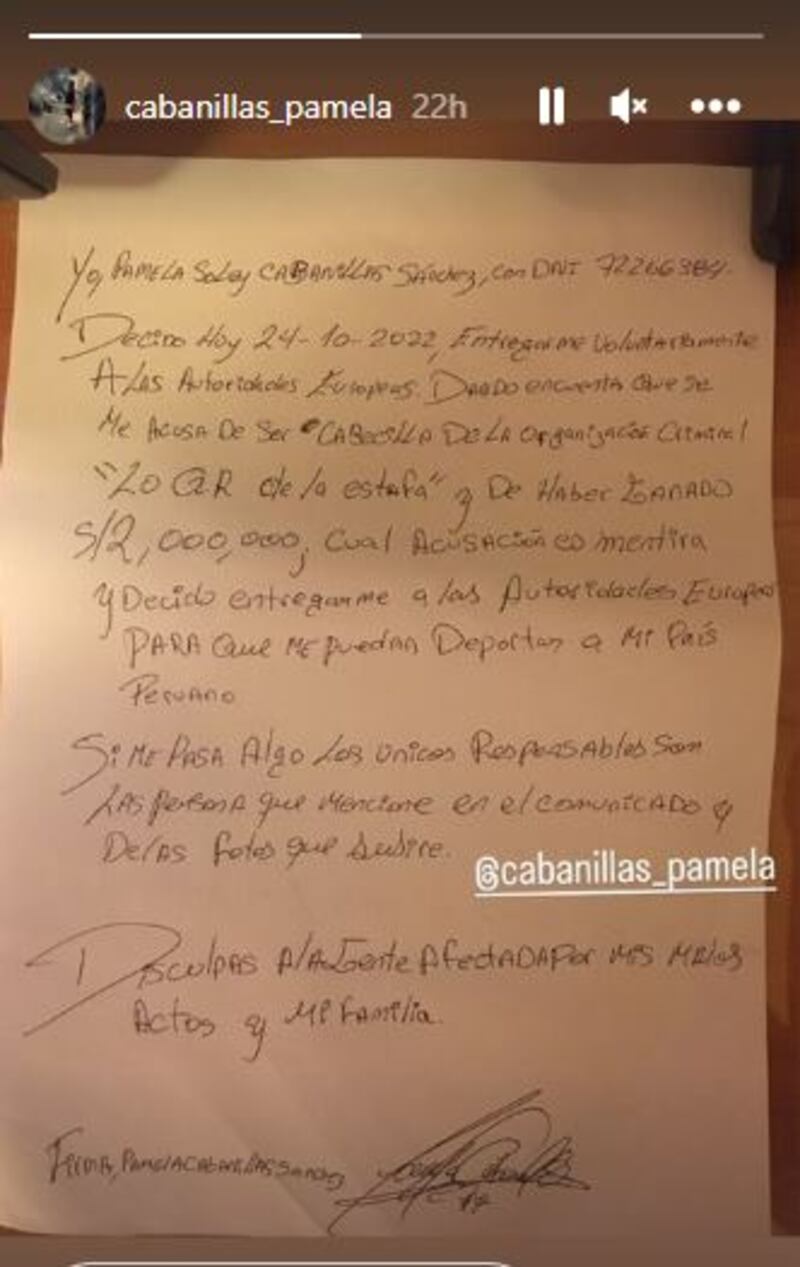 cabanillas_pamela 22h
Yo, PAMELA Soley CABANILLAS Sánchez, con DNI 72266384.
Decido Hoy 24-10-2022, Entregarme voluntariamente
A Las Autoridades Europeas. Dando encuenta Que se
Me Acusa De Ser "CABECILLA DE LA Organización Criminal
"LO QR de la estafa" y De Haber GANADO
S/2,000,000, Cual Acusación es mentira
y Decido entregarme a las Autoridades Europeas
PARA Que ME puedan Deportar a Mi País
Peruano
Si ME PASA Algo Los unicos Responsables Son
LAS persona que mencione en el comunicado y
De las fotos que subire.
@cabanillas_pamela
Disculpas A la Gente AfectADA Por Mis MAlos
Actos y Mi familia.
Firma, PAMELA CABANILLAS Sanchez